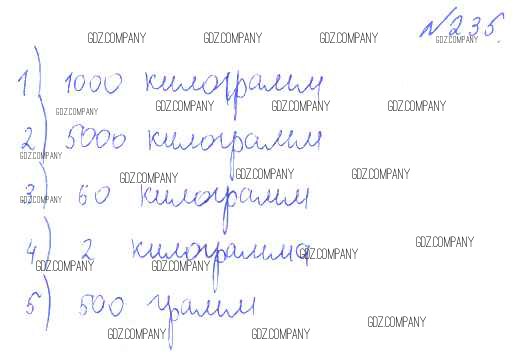 №235.
GDZ.COMPANY GDZ.COMPANY GDZ.COMPANY GDZ.COMPANY
1) 1000 килограмм
GDZ.COMPANY GDZ.COMPANY GDZ.COMPANY GDZ.COMPANY
2) 5000 килограмм
GDZ.COMPANY
GDZ.COMPANY GDZ.COMPANY GDZ.COMPANY
3) 60 килограмм
GDZ.COMPANY
4) 2 килограмма
GDZ.COMPANY GDZ.COMPANY GDZ.COMPANY GDZ.COMPANY
5) 500 грамм
GDZ.COMPANY GDZ.COMPANY GDZ.COMPANY